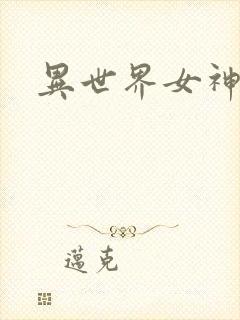 異世界女神
邁克